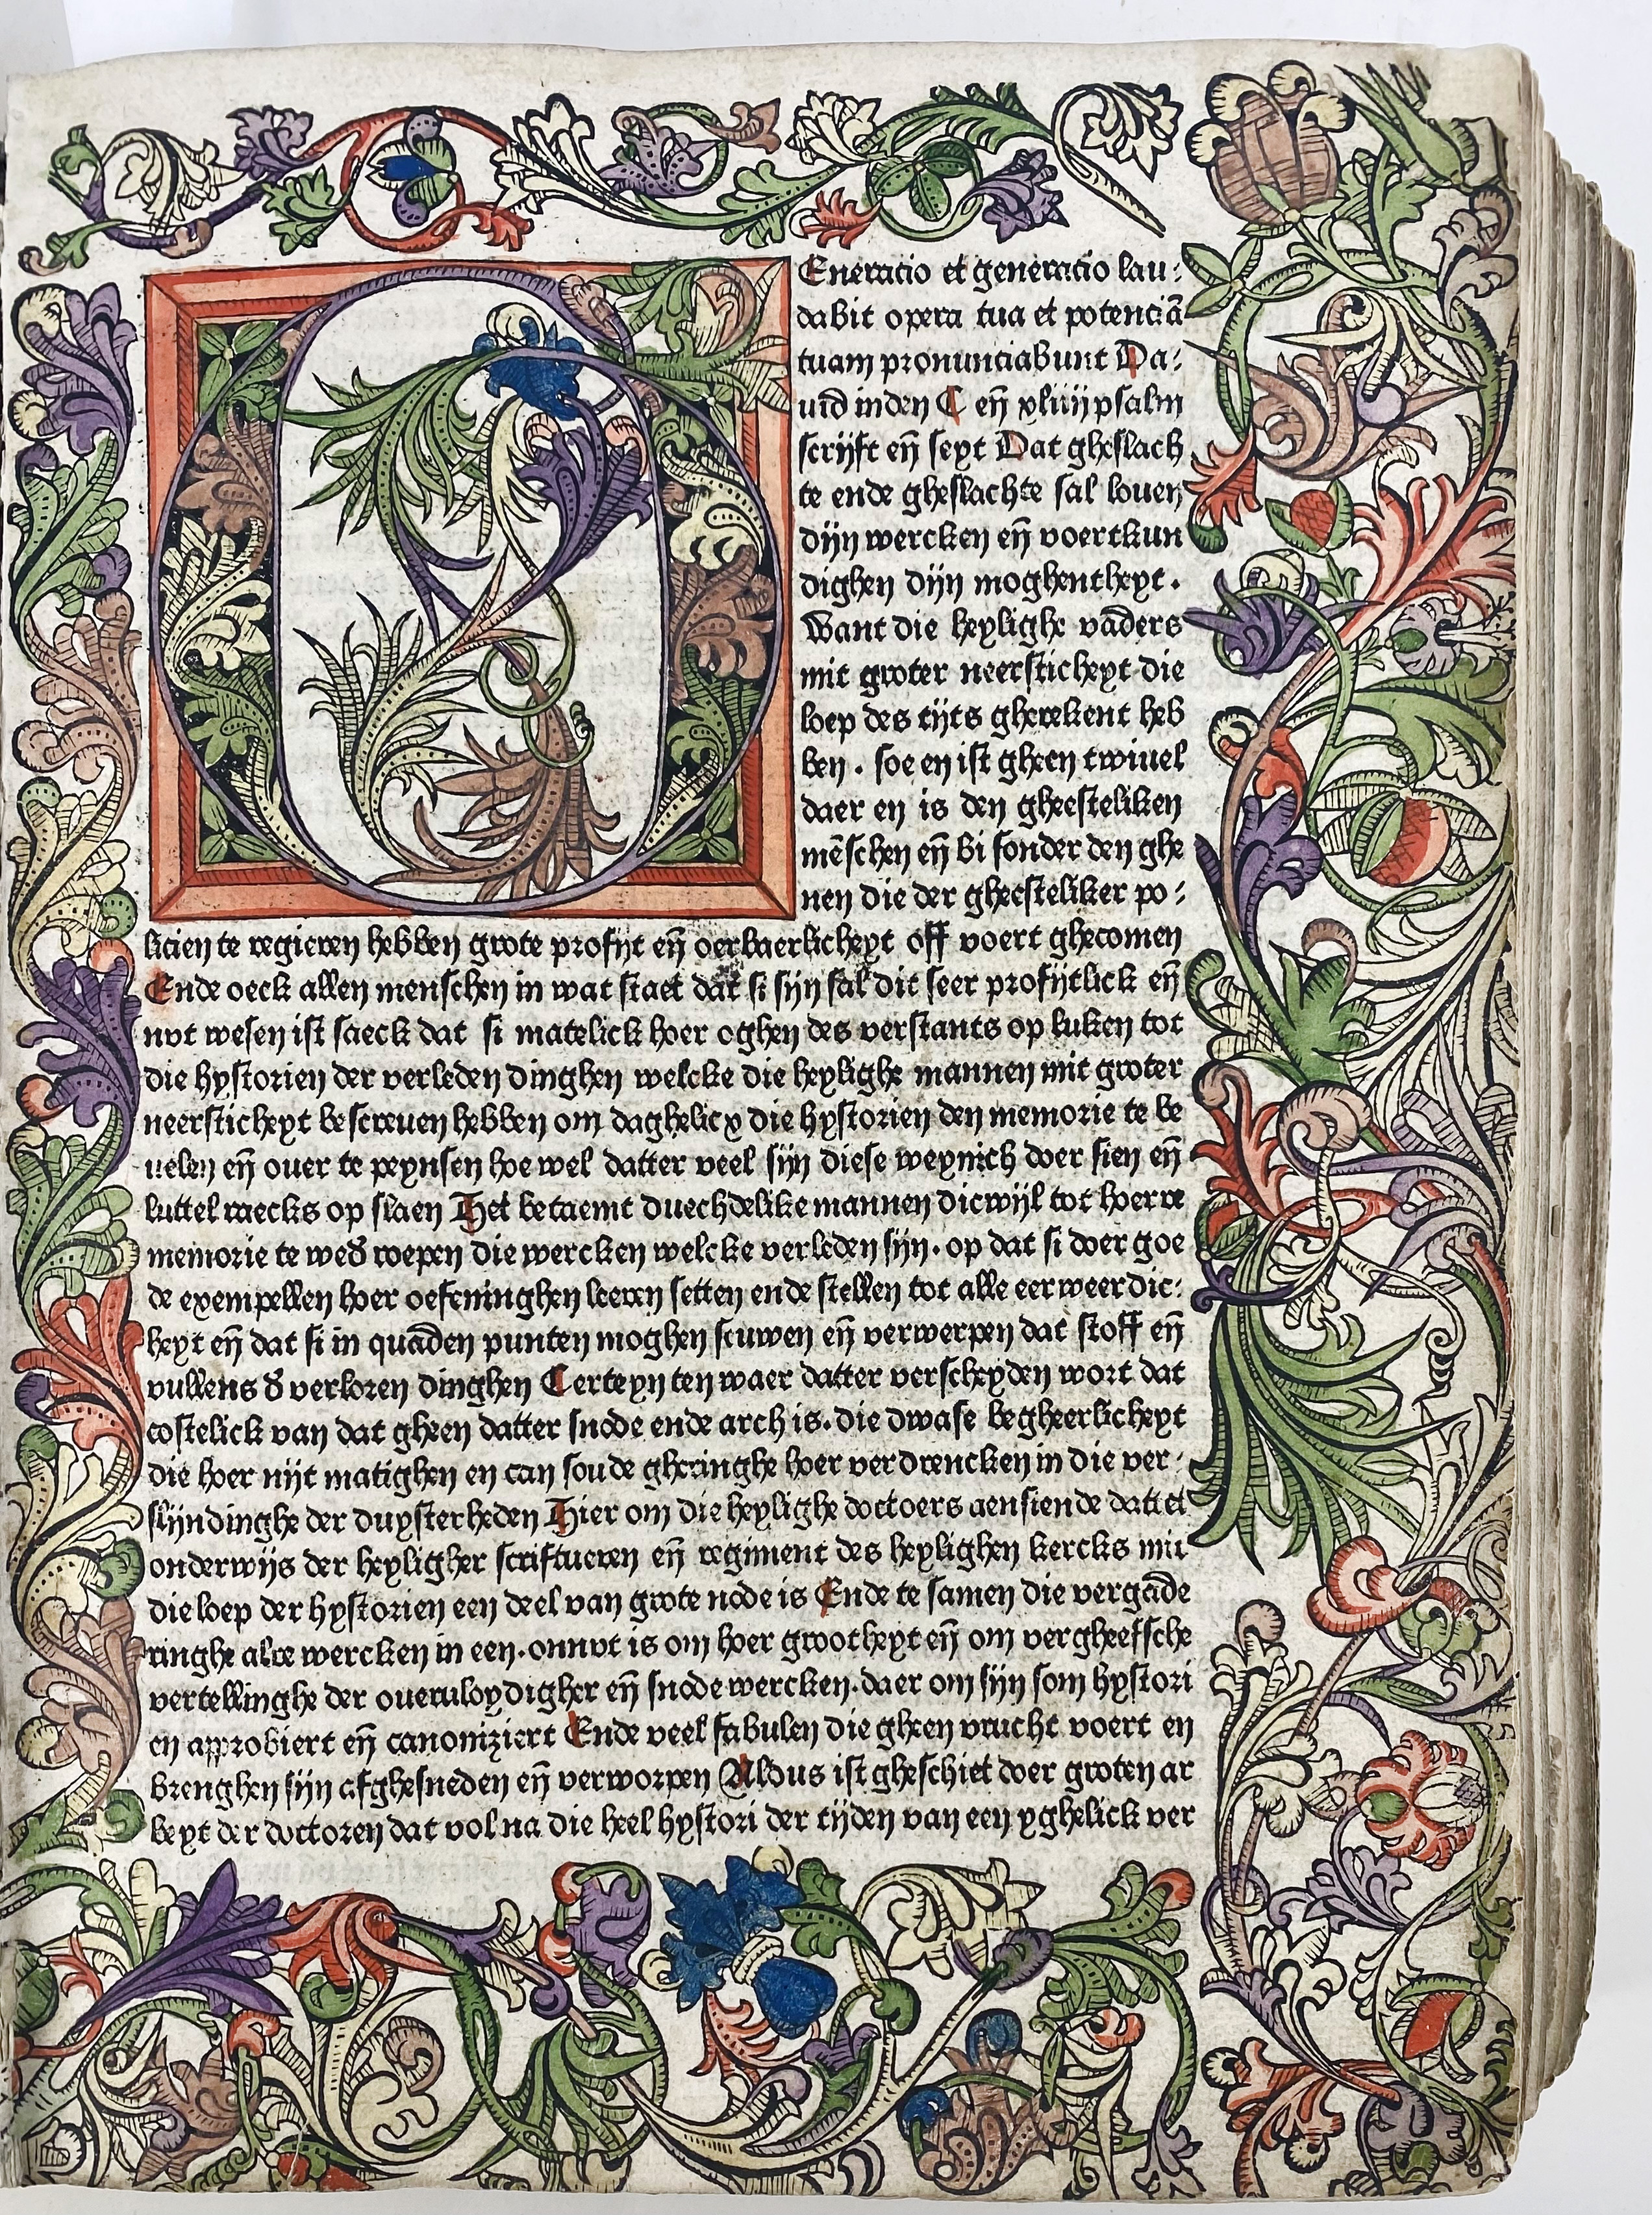 Eneracio et generacio lau⸗
dabit opera tua et potenciā
tuam pronunciabunt Da⸗
uid inden C eñ xliiij psalm
scrijft eñ seyt Dat gheslach
te ende gheslachte sal louen
dijn wercken eñ voertkun
dighen dijn moghentheyt.
Want die heylighe vāders
mit groter neersticheyt die
loep des tijts gherekent heb
ben. soe en ist gheen twiuel
daer en is den gheesteliken
mēschen eñ bi sonder den ghe
nen die der gheesteliker po⸗
licien te regieren hebben grote profijt eñ oerbaerlicheyt off voert ghecomen
Ende oeck allen menschen in wat staet dat si sijn sal dit seer profijtlick eñ
nvt wesen ist saeck dat si matelick hoer oghen des verstants op luken tot
die hystorien der verleden dinghen welcke die heylighe mannen mit groter
neersticheyt bescreuen hebben om daghelicx die hystorien den memorie te be
uelen eñ ouer te peynsen hoe wel datter veel sijn diese weynich doer sien eñ
luttel raecks op slaen Het betaemt duechdelike mannen dicwijl tot hoerre
memorie te wed̄ roepen die wercken welcke verleden sijn. op dat si doer goe
de exempellen hoer oefeninghen leeren setten ende stellen tot alle eerweerdic⸗
heyt eñ dat si in quāden punten moghen scuwen eñ verwerpen dat stoff eñ
vullens d̄ verloren dinghen Certeyn ten waer datter verscheyden wort dat
costelick van dat gheen datter snode ende arch is. die dwase begheerlicheyt
die hoer nijt matighen en can soude gheringhe hoer verdrencken in die ver⸗
slijndinghe der duysterheden Hier om die heylighe doctoers aensiende dattet
onderwijs der heyligher scriftueren eñ regiment des heylighen kercks mit
die loep der hystorien een deel van grote node is Ende te samen die vergāde
ringhe alre wercken in een. onnvt is om hoer grootheyt eñ om vergheefsche
vertellinghe der oueruloydigher eñ snode wercken. daer om sijn som hystori
en approbiert eñ canoniziert Ende veel fabulen die gheen vrucht voert en
brenghen sijn afghesneden eñ verworpen Aldus ist gheschiet doer groten ar
beyt der doctoren dat vol na die heel hystori der tijden van een yghelick ver